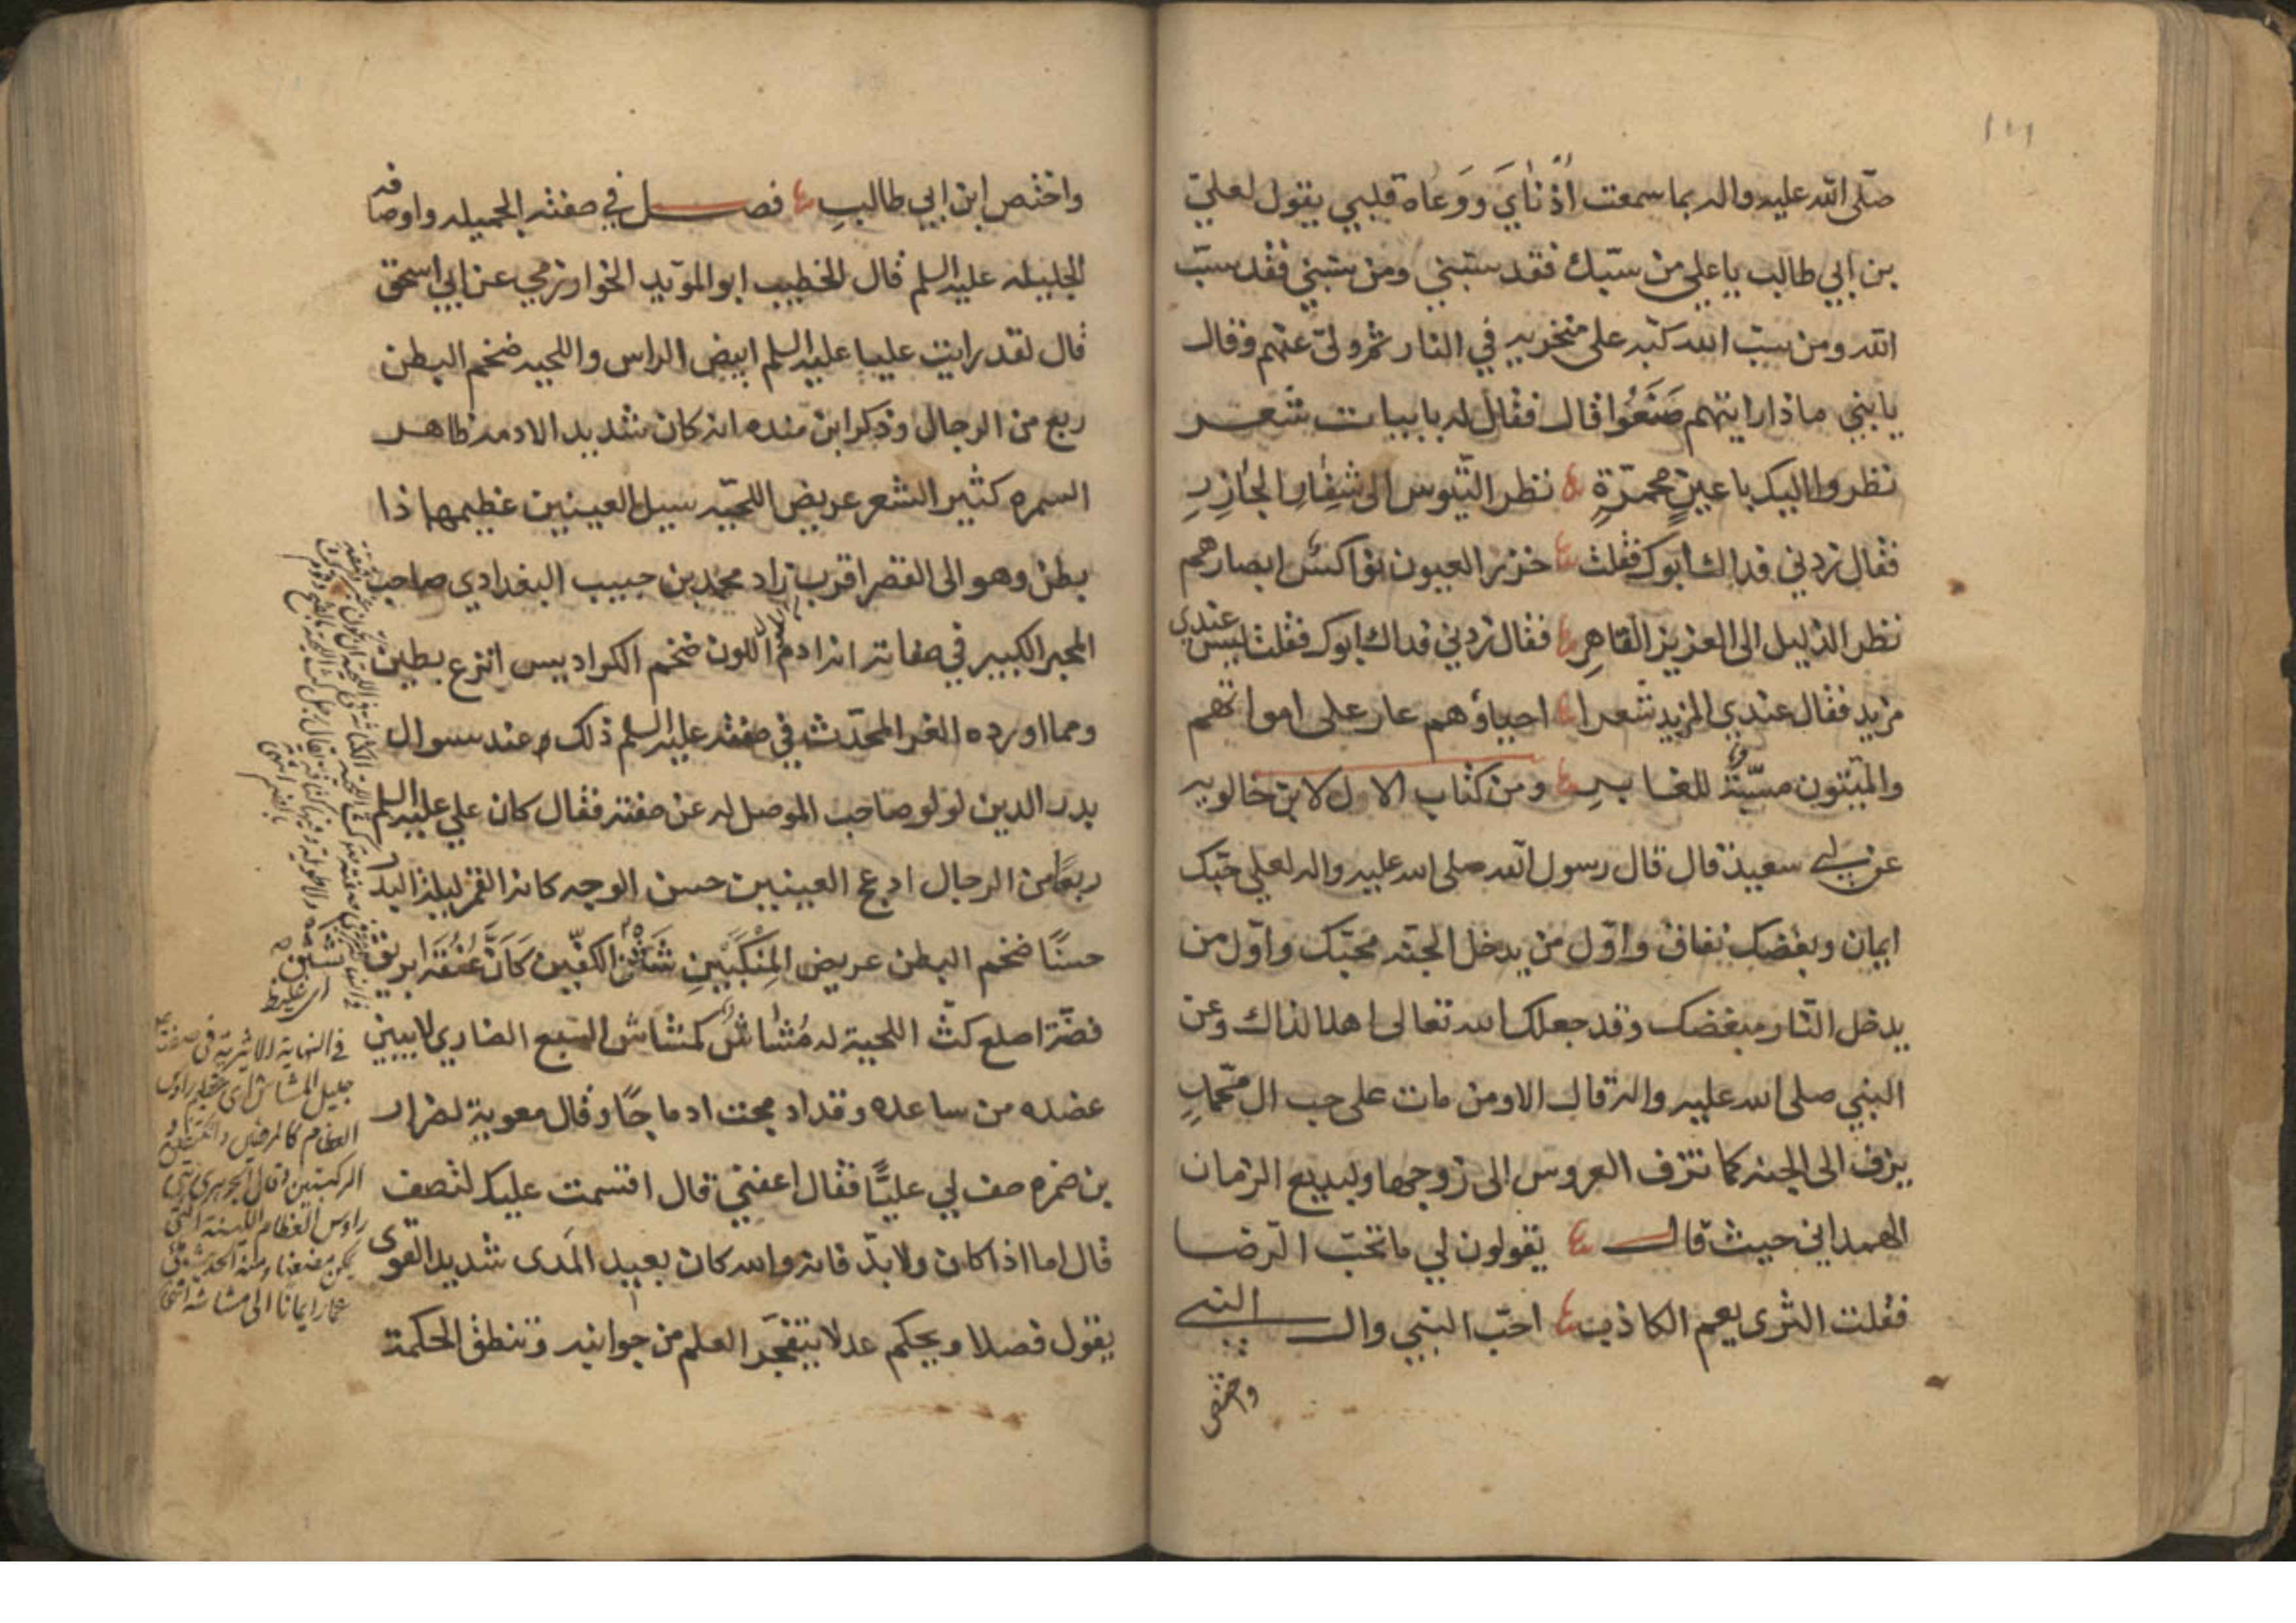 صلى الله عليه واله بما سمعت أُذناي ووعاه قلبي يقول لعلي
بن ابي طالب يا علي من سبّك فقد سبّني ومن سبني فقد سبّ
الله ومن سبّ الله كبّه على منخريه في النار ثم ولى عنهم وقال
يا بني ماذا رايتهم صَنَعُوا قال فقال له بابيات شعر
نظروا اليك باعينٍ محمرّةٍ نظر التيوس الى شفار الجازِرِ
فقال زدني فداك ابوك فقلت خزر العيون نواكس ابصارهم
نظر الذليل الى العزيز القاهرِ فقال زدني فداك ابوك فقلت ليس عندي
مزيد فقال عندي المزيد شعرا احياؤهم عار على امواتهم
والميّتون مسبّة للغابرِ ومن كتاب الال لابن خالويه
عن ابي سعيد قال قال رسول الله صلى الله عليه واله لعلي حبّك
ايمان وبغضك نفاق واوّل من يدخل الجنّه محبّك واوّل من
يدخل النّار مبغضك وقد جعلك الله تعالى اهلا لذاك وعن
النبي صلى الله عليه واله قال الا ومن مات على حب ال محمّدٍ
يزف الى الجنه كما تزف العروس الى زوجها ولبديع الزمان
الهمداني حيث قال يقولون لي ما تحبّ الرّضا
فقلت الثرى بفم الكاذب احبّ النبي وال النبي
واختص
واختص ابن ابي طالبِ فصل في صفته الجميله واوصافه
الجليله عليه السلم قال الخطيب ابو المويد الخوارزمي عن ابي اسحق
قال لقد رايت عليا عليه السلم ابيض الراس واللحيه ضخم البطن
ربع من الرجال وذكر ابن منده انه كان شديد الادمه ظاهر
السمره كثير الشعر عريض اللحيّه سيل العينين عظيمها ذا
بطن وهو الى القصر اقرب زاد محمد بن حبيب البغدادي صاحب
المحبر الكبير في صفاته انه ادم اللون ضخم الكراديس انزع بطين
ومما اورده العز المحدّث في صفته عليه السلم ذلك عند سوال
بدر الدين لولو صاحب الموصل له عن صفته فقال كان علي عليه السلم
ربعًا من الرجال ادعج العينين حسن الوجه كانه القمر ليلة البدر
حسنًا ضخم البطن عريض المِنكَبَينِ شثن الكفّين كَأَنَّ عُنُقَه ابريق
فضّة اصلع كثّ اللحية له مُشاشٌ كمشاش السبع الضاري لا يبين
عضده من ساعده وقد ادمجت ادماجًا وقال معوية لضرار
بن ضمره صف لي عليًّا فقال اعفني قال اقسمت عليك لتصف
قال اما اذا كان ولا بدّ فانه والله كان بعيد المَدى شديد القوى
يقول فصلا ويحكم عدلا يتفجّر العلم من جوانبه وتنطق الحكمة
شثن
اى غليظ
في النهاية الاثيرية في صفته
جليل المشاش اى عظيم راوس
العظام كالمرفقين والكتفين و
الركبتين وقال الجوهرى هى
راوس العظام اللينة التى
يمكن مضغها ومنه الحديث ملئ
عمار ايمانا الى مشاشه انتهى